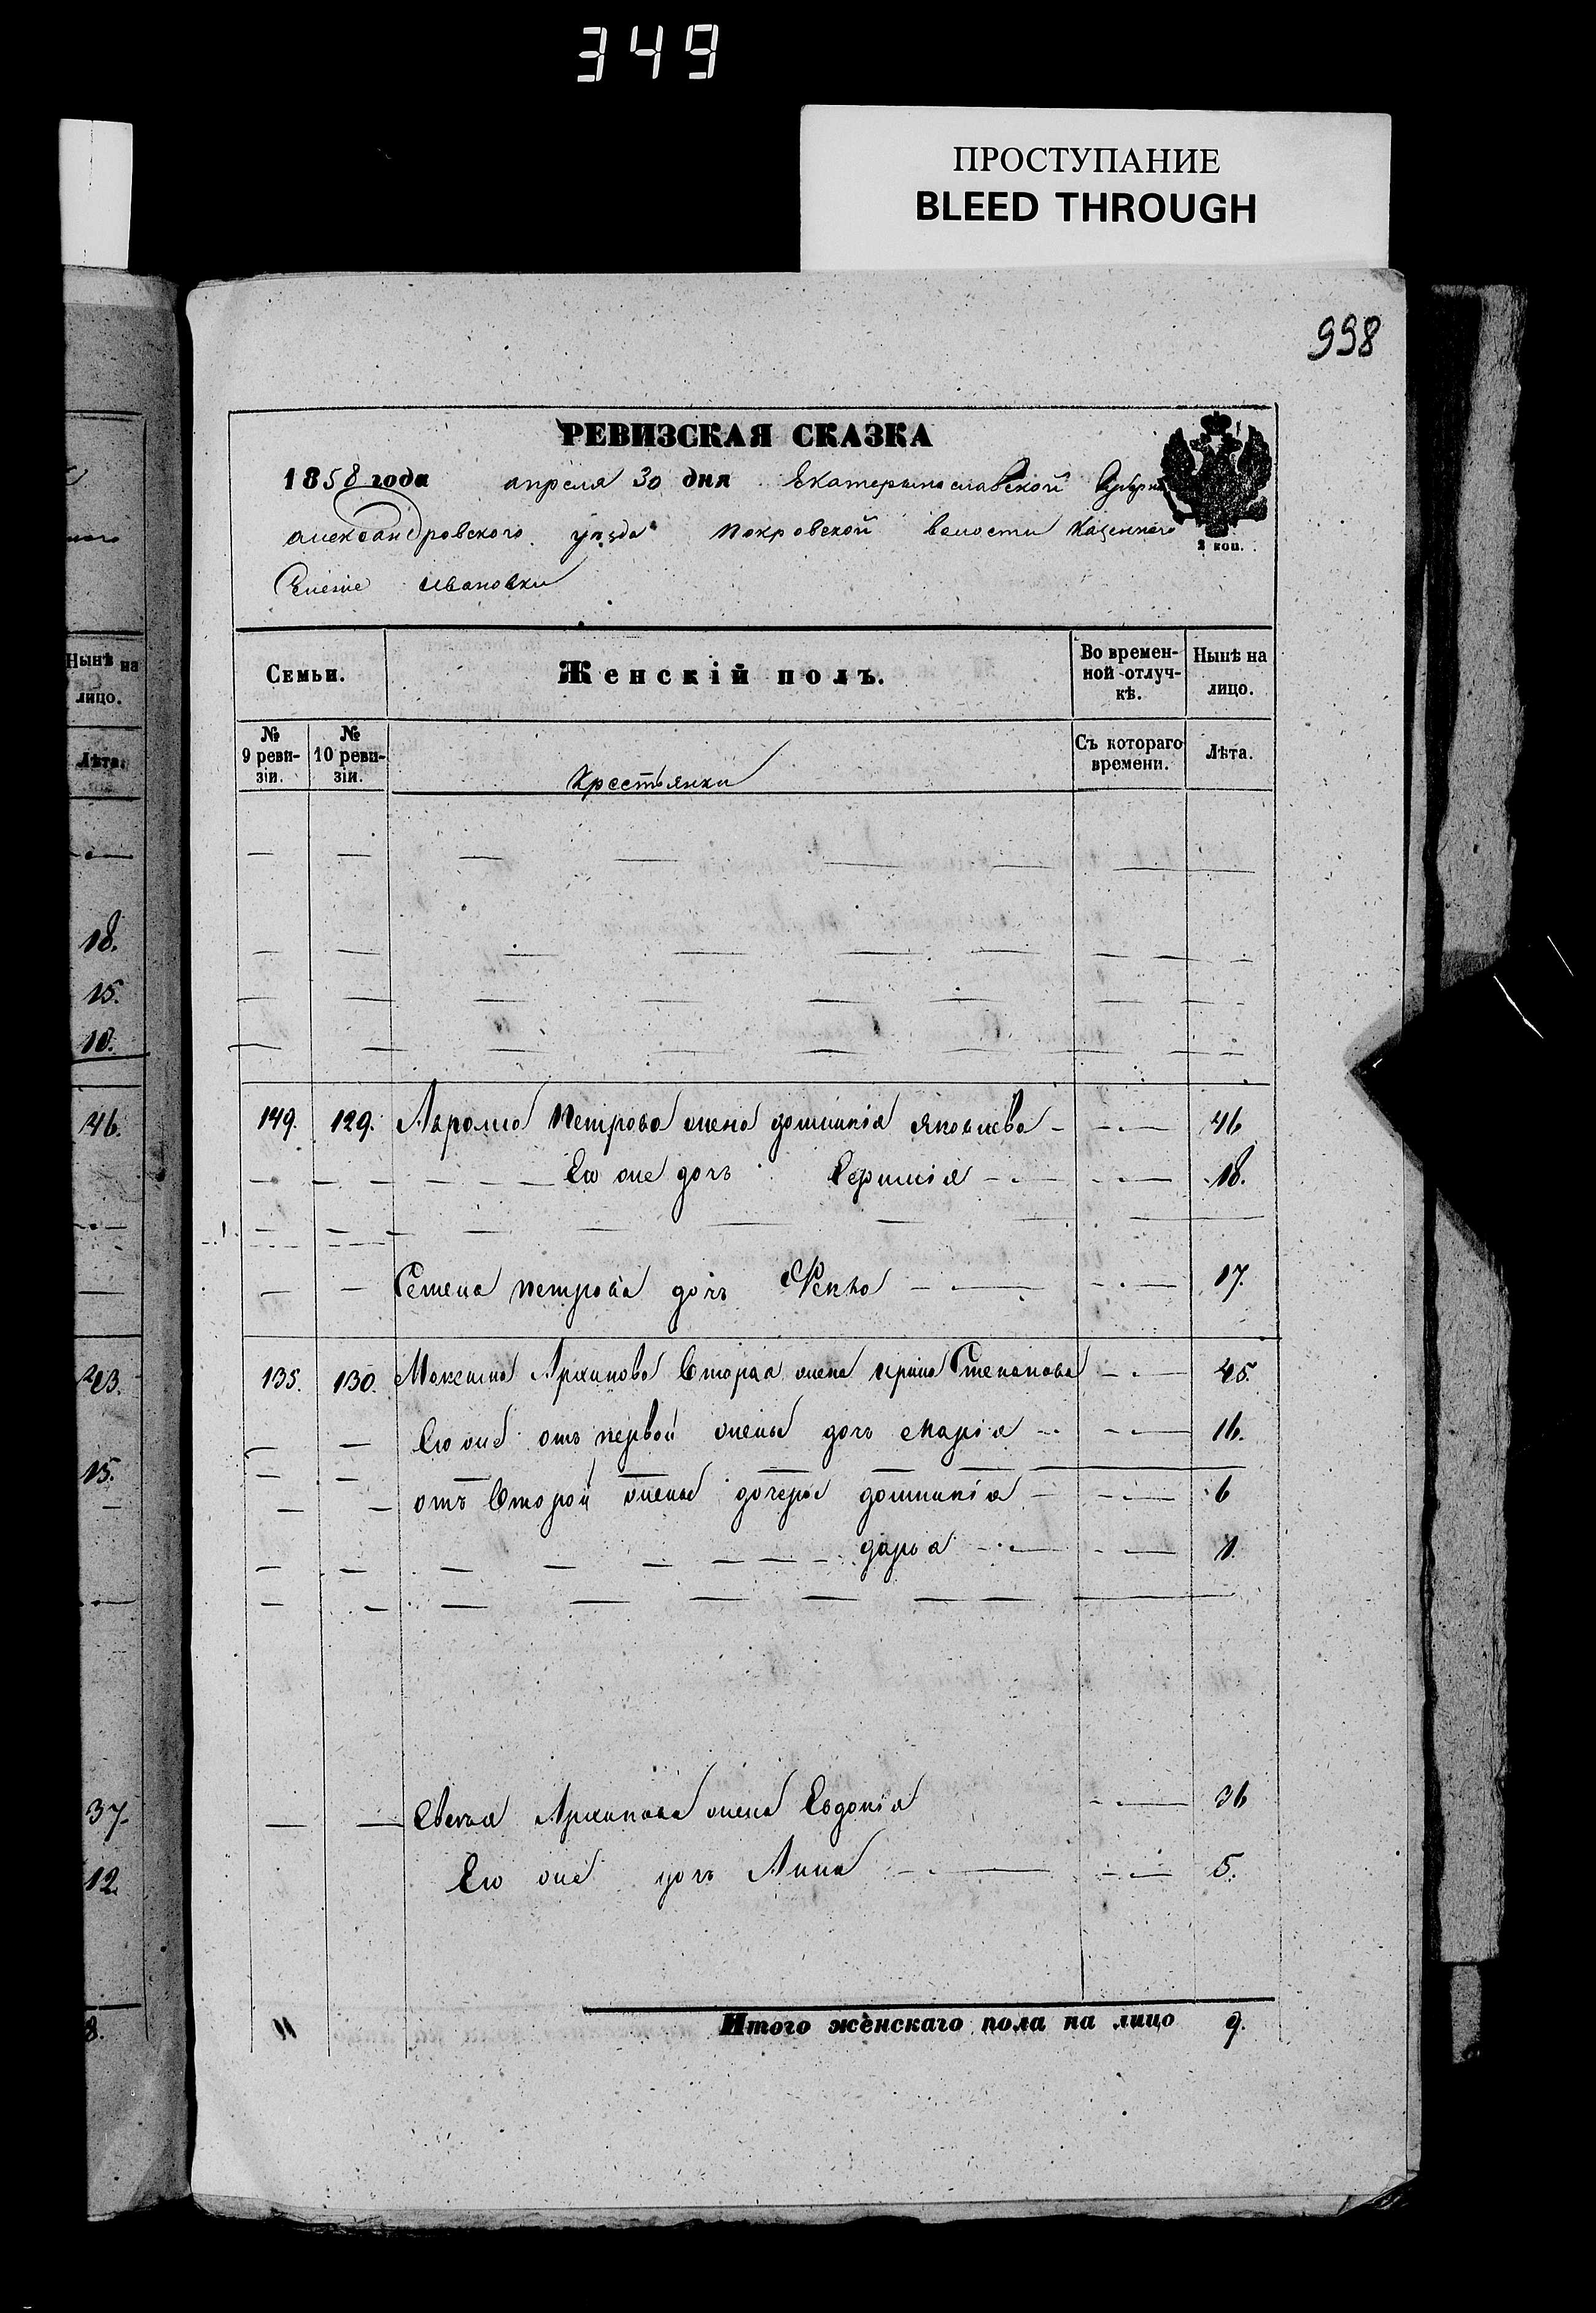 349
ПРОСТУПАНИЕ
BLEED THROUGH
998
РЕВИЗСКАЯ СКАЗКА
1858 года апреля 30 дня Екатеринославской Губерніи
александровского уѣзда покровской волости казенного
Селенія ивановки
2 коп.
Семьи. Женскій полъ. Во временной отлучкѣ. Нынѣ на лицо.
№ 9 ревизіи. № 10 ревизіи. Крестьянки Съ котораго времени. Лѣта.
149. 129. Петрова жена домникія яковлева 46
Его же дочь 18.
Семена петрова дочь Фекла 17.
135. 130. Максима Архипова вторая жена ирина Степанова 45.
Его же отъ первой жены дочь марія 16.
отъ второй жены дочери домникія 6
дарья 1.
Архипова жена Евдокія 36
Его же дочь Анна 5.
Итого женскаго пола на лицо 9.
Нынѣ на лицо.
Лѣта.
18.
15.
10.
46.
23.
15.
37.
12.
8.